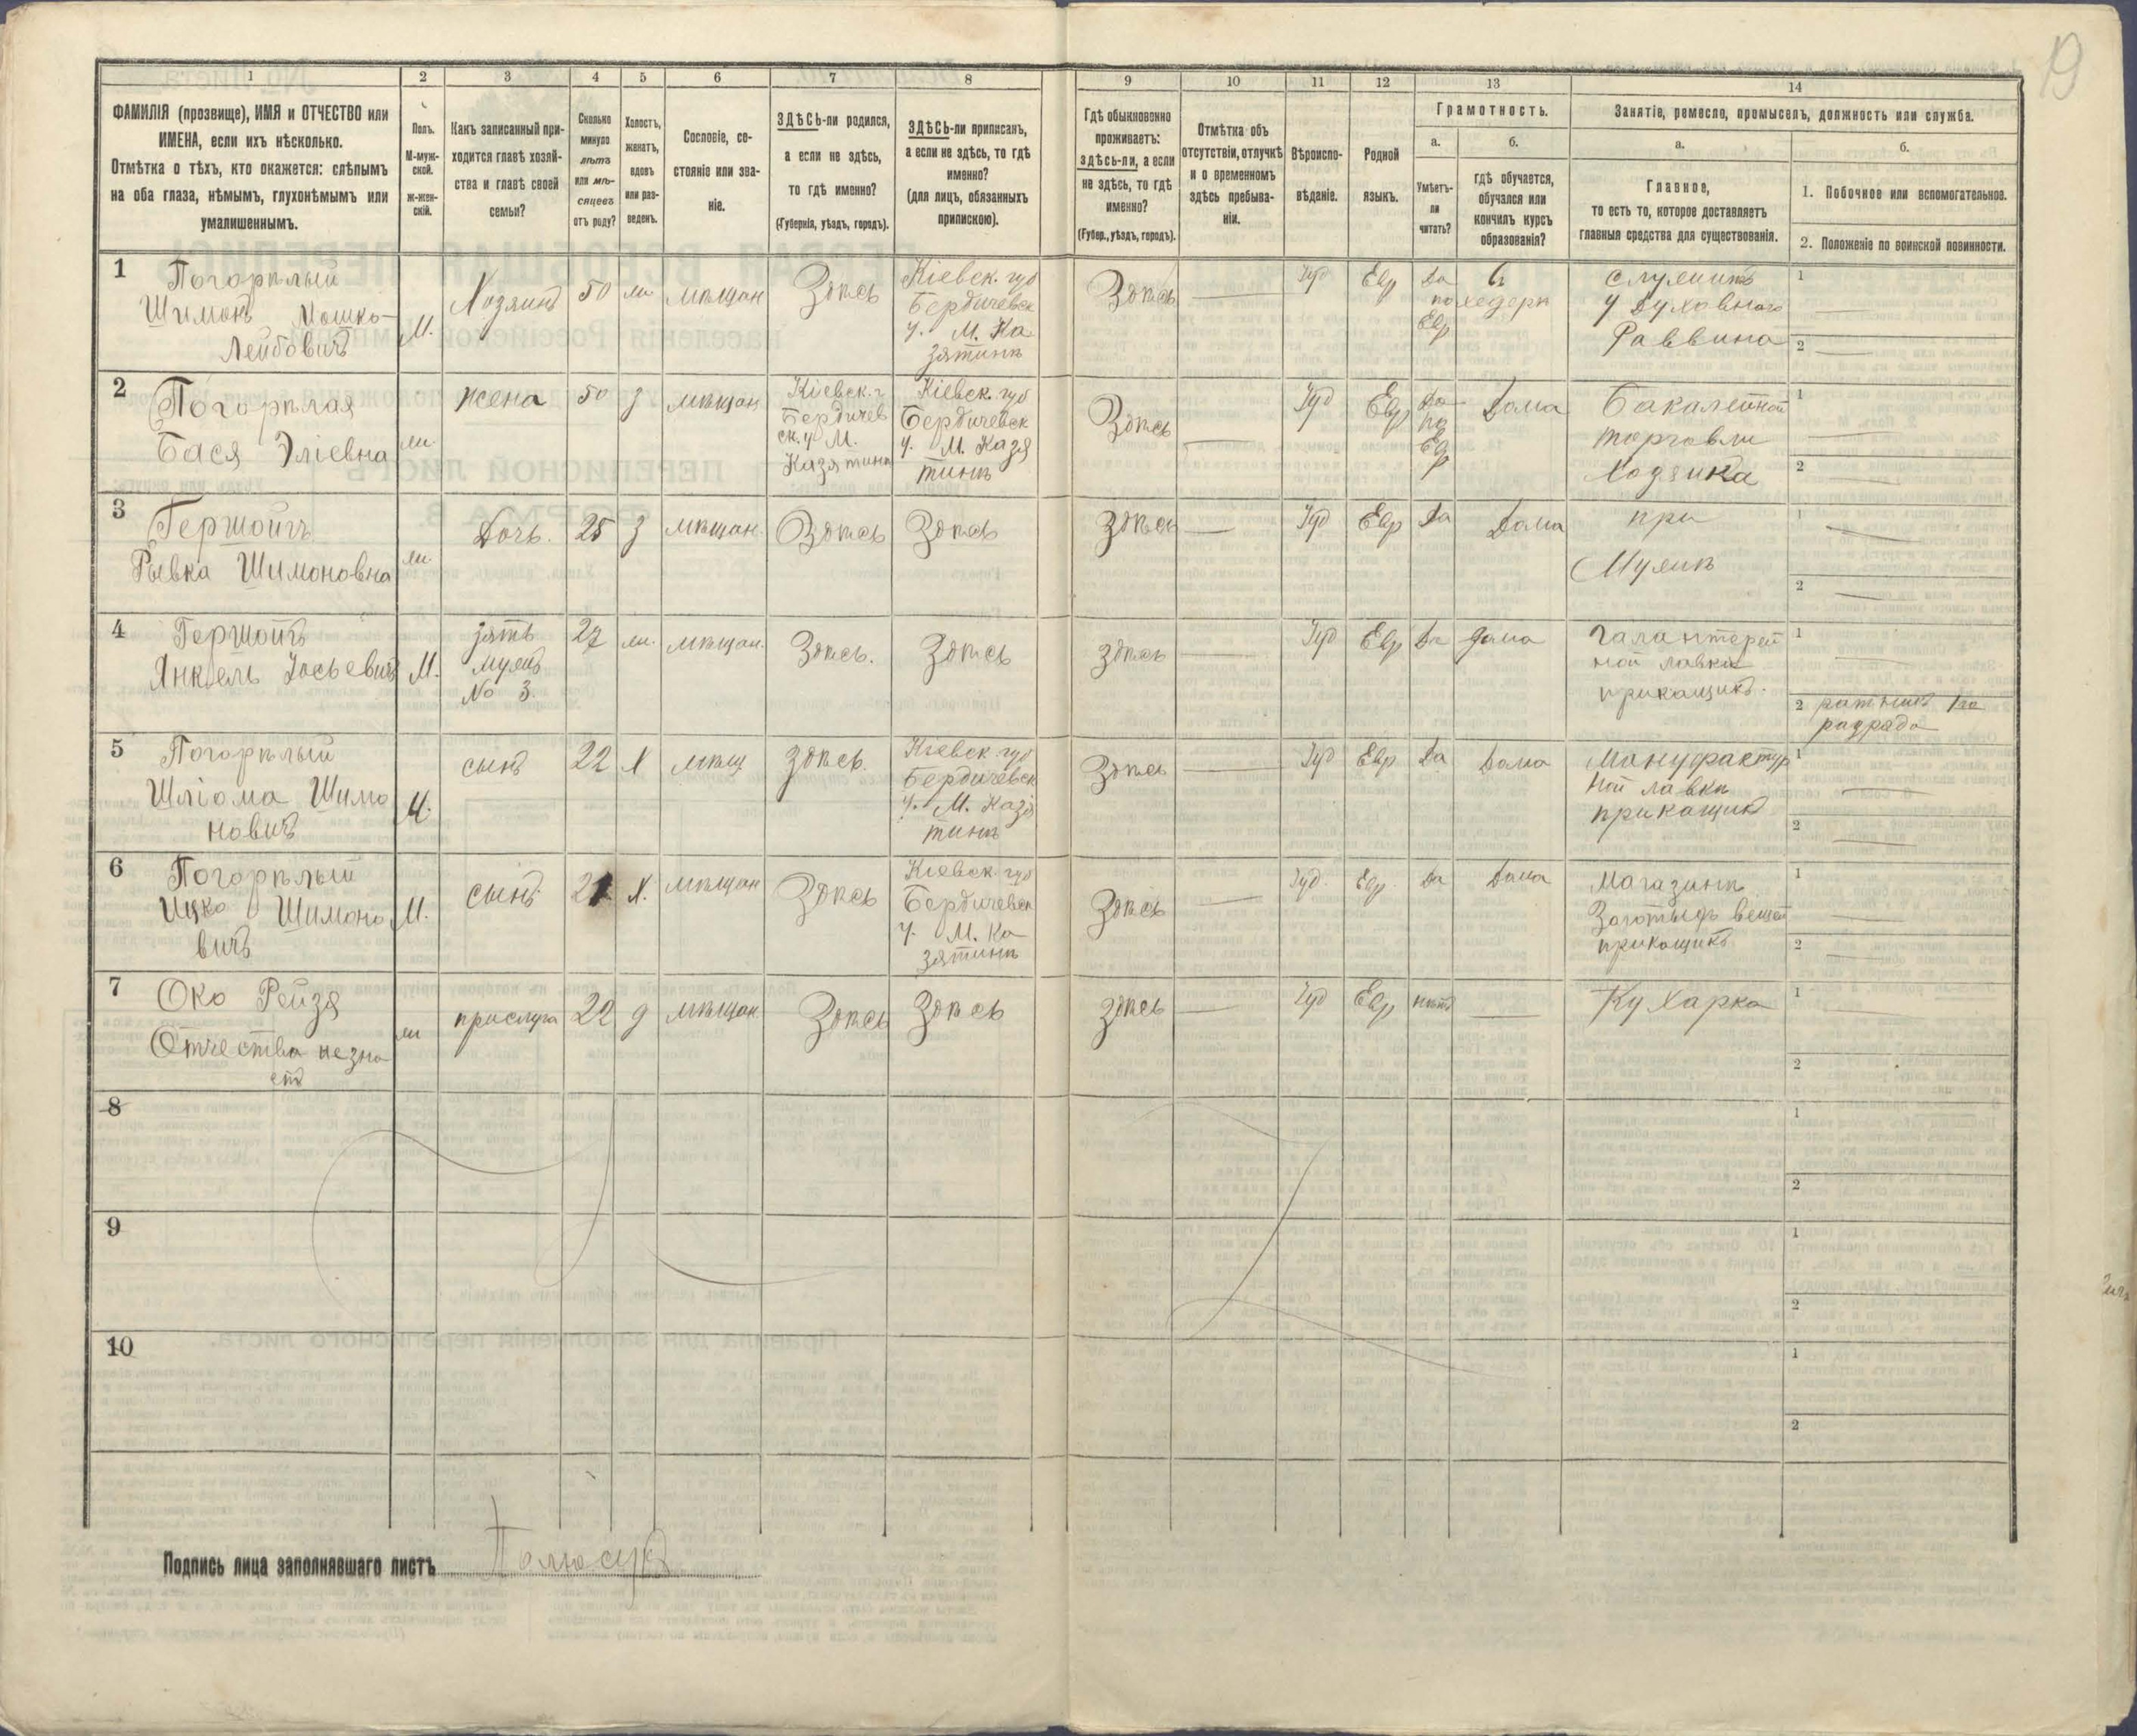 19
1 2 3 4 5 6 7 8 9 10 11 12 13 14
ФАМИЛІЯ (прозвище), ИМЯ и ОТЧЕСТВО или
ИМЕНА, если ихъ нѣсколько.
Отмѣтка о тѣхъ, кто окажется: слѣпымъ
на оба глаза, нѣмымъ, глухонѣмымъ или
умалишеннымъ.
Полъ.
М-муж-
ской.
ж-жен-
скій.
Какъ записанный при-
ходится главѣ хозяй-
ства и главѣ своей
семьи?
Сколько
минуло
лѣтъ
или мѣ-
сяцевъ
отъ роду?
Холостъ,
женатъ,
вдовъ
или раз-
веденъ.
Сословіе, со-
стояніе или зва-
ніе.
ЗДѢСЬ-ли родился,
а если не здѣсь,
то гдѣ именно?
(Губернія, уѣздъ, городъ).
ЗДѢСЬ-ли приписанъ,
а если не здѣсь, то гдѣ
именно?
(для лицъ, обязанныхъ
припискою).
Гдѣ обыкновенно
проживаетъ:
здѣсь-ли, а если
не здѣсь, то гдѣ
именно?
(Губер., уѣздъ, городъ).
Отмѣтка объ
отсутствіи, отлучкѣ
и о временномъ
здѣсь пребыва-
ніи.
Вѣроиспо-
вѣданіе.
Родной
языкъ.
Грамотность.
а.
Умѣетъ-
ли
читать?
б.
гдѣ обучается,
обучался или
кончилъ курсъ
образованія?
Занятіе, ремесло, промыселъ, должность или служба.
а.
Главное,
то есть то, которое доставляетъ
главныя средства для существованія.
б.
1. Побочное или вспомогательное.
2. Положеніе по воинской повинности.
1
Погорѣлый
Шимонъ Мошко-
Лейбовичъ
М.
Хозяинъ
50
ж
мѣщан
Здѣсь
Кіевск. губ
Бердичевск
у. М. Ка
зятинѣ
Здѣсь
Іуд
Евр
Да
по
Евр
В
хедерѣ
служитъ
у Духовнаго
Раввина
1
2
2
Погорѣлая
Бася Эліевна
ж.
жена
50
з
мѣщан
Кіевск. г
Бердичев
ск. у М.
Казятинѣ
Кіевск. губ
Бердичевск
у. М. Казя
тинѣ
Здѣсь
Іуд
Евр
Да
по
Ев
р
Дома
Бакалейной
торговли
Хозяйка
1
2
3
Гершойгъ
Рывка Шимоновна
ж.
Дочь.
25
з
мѣщан.
Здѣсь
Здѣсь
Здѣсь
Іуд
Евр
Да
Дома
при
Мужѣ
1
2
4
Гершойгъ
Янкель Іосьевичъ
М.
зять
мужъ
№ 3.
27
ж.
мѣщан.
Здѣсь.
Здѣсь
здѣсь
Іуд
Евр
Да
дома
Галантерей
ной лавки
прикащикъ.
1
2 ратникъ 1го
разряда
5
Погорѣлый
Шліома Шимо
новичъ
М.
сынъ
22
Х
мѣщ
здѣсь.
Кіевск губ
Бердичевск
у. М. Казя
тинѣ
Здѣсь
Іуд
Евр
Да
Дома
Мануфактур
ной лавки
прикащикъ
1
2
6
Погорѣлый
Ицко Шимоно
вичъ
М.
сынъ.
21
Х.
мѣщан
Здѣсь
Кіевск. губ
Бердичевск
у. М. Ка
зятинѣ
Здѣсь
Іуд.
Евр.
Да
Дома
Магазинѣ
вещей
прикащикъ
1
2
7
Око Рейзя
Отчества незна
етъ
ж
прислуга
22
д
мѣщан
Здѣсь
Здѣсь
здѣсь
Іуд
Евр
нѣтъ
Кухарка
1
2
8
1
2
9
1
2
10
1
2
Подпись лица заполнявшаго листъ